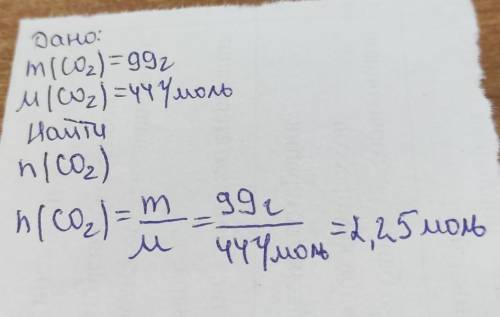 Дано:
m(CO₂)=99г
M(CO₂)=44г/моль
Найти
n(CO₂)
n(CO₂)=m/M=99г/44г/моль=2,25моль